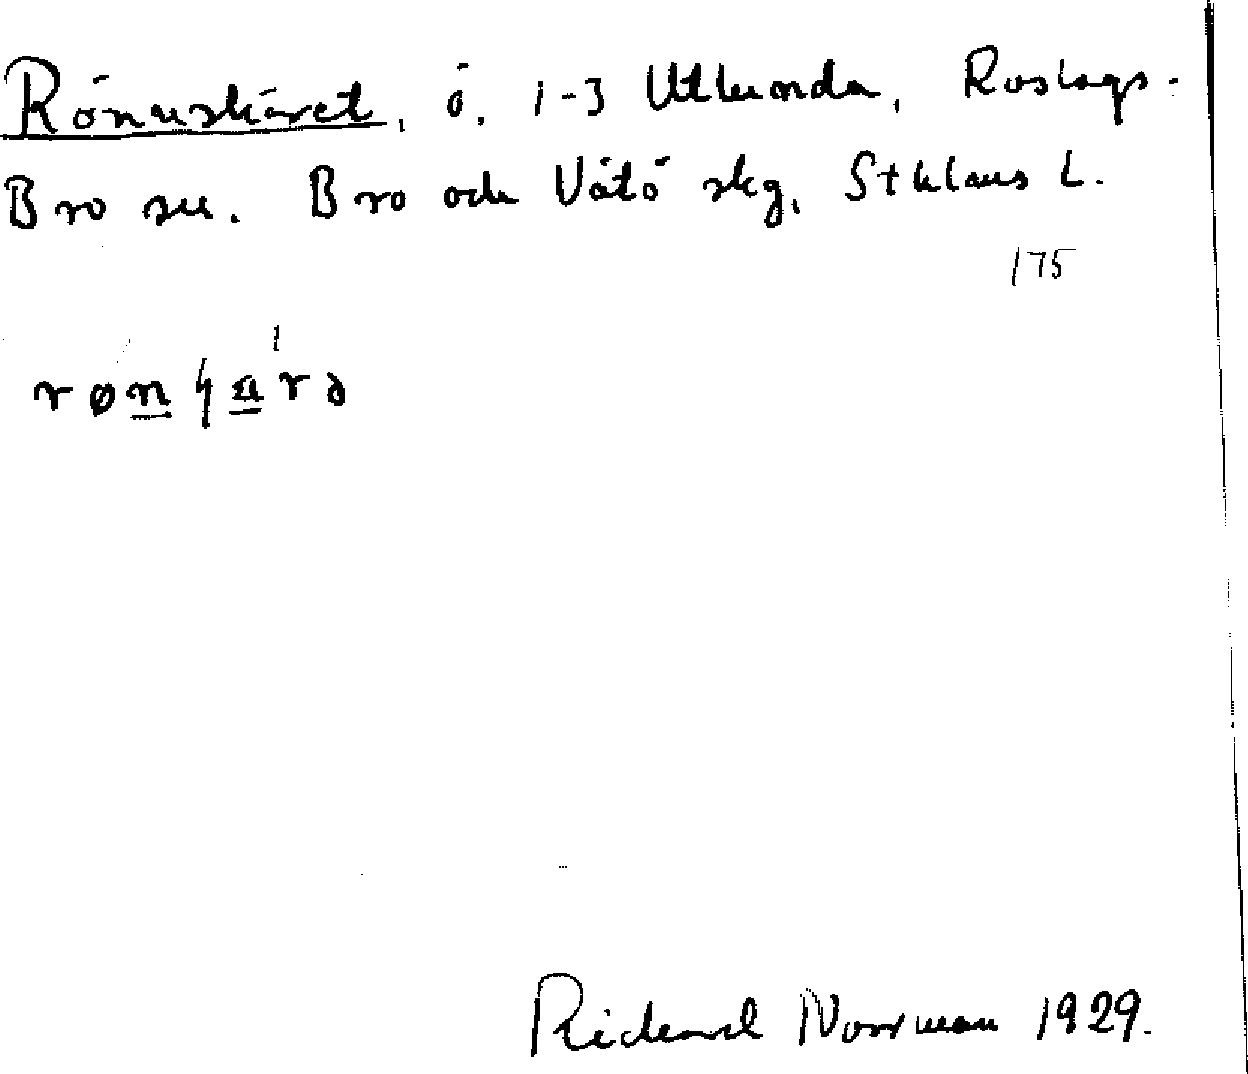 Rönnskäret, ö. 1-3 Utlunda, Roslags-
Bro sn. Bro och Vätö skg, Sthlms L.
175
Rickard Norrman 1929.